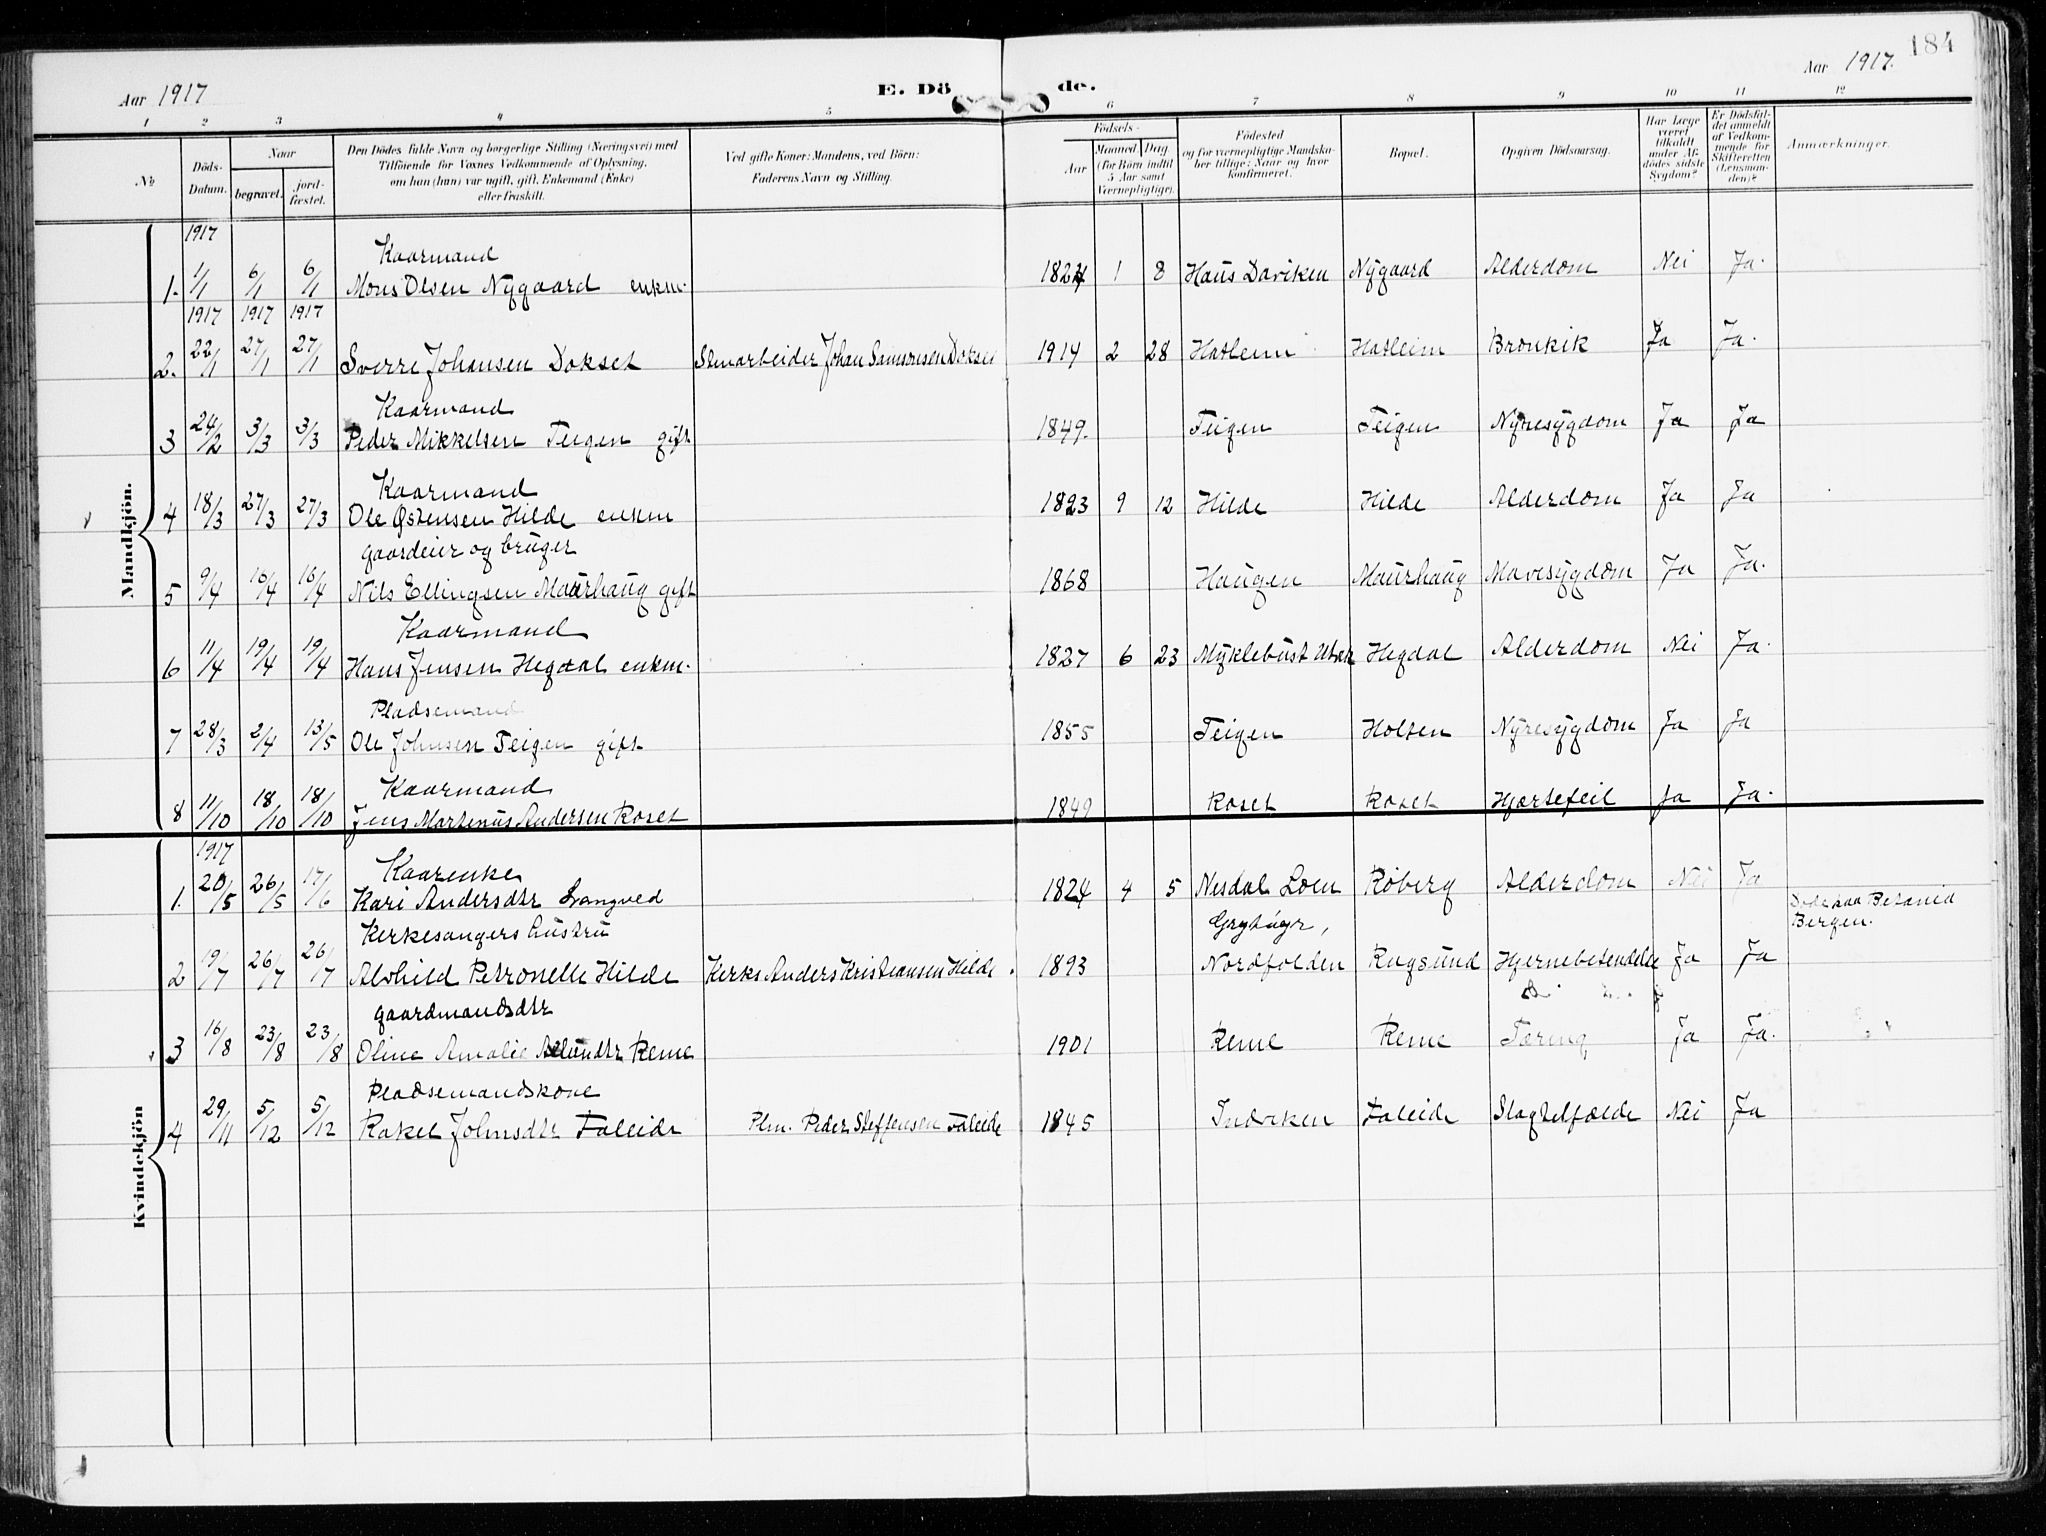 184
Aar 1917
E. Dö de.
Aar 1917.
1 2 3 4 5 6 7 8 9 10 11 12
№
Döds-Datum.
Naar
begravet.
jordfæstet.
Den Dödes fulde Navn og borgerlige Stilling (Næringsvei) med
Tilföiende for Voxnes Vedkommende af Oplysning,
om han (hun) var ugift, gift, Enkemand (Enke)
eller fraskilt.
Ved gifte Koner: Mandens, ved Börn:
Faderens Navn og Stilling.
Födsels-
Aar
Maaned Dag
(for Börn indtil
5 Aar samt
Værnepligtige).
Födested
og for værnepligtige Mandska-
ber tillige: Naar og hvor
konfirmeret.
Bopæl.
Opgiven Dödsaarsag.
Har Læge
været
tilkaldt
under Af-
dödes sidste
Sygdom?
Er Dödsfal-
det anmeldt
af Vedkom-
mende for
Skifteretten
(Lensman-
den)?
Anmærkninger.
Mandkjön.
1917
Kaarmand
1. 1/1 6/1 6/1 Mons Olsen Nygaard enkm. 1824 1 8 Haus Daviken Nygaard Alderdom Nei Ja.
1917 1917 1917
2. 22/1 27/1 27/1 Sverre Johansen Dokset Stenarbeider Johan Samsonsen Dokset 1914 2 28 Hatleim Hatleim Bronkik Ja Ja.
Kaarmand
3 24/2 3/3 3/3 Peder Mikkelsen Teigen gift 1849. Teigen Teigen Nyresygdom Ja Ja
Kaarmand
4 18/3 27/3 27/3 Ole Østensen Hilde enkm 1823 9 12 Hilde Hilde Alderdom Ja Ja
gaardeier og bruger
5 9/4 16/4 16/4 Nils Ellingsen Maurhaug gift 1868 Haugen Maurhaug Mavesygdom Ja Ja.
Kaarmand
6 11/4 19/4 19/4 Hans Jensen Hegdal enkm. 1827 6 23 Myklebust Hegdal Alderdom Nei Ja.
Pladsemand
7 28/3 2/4 13/5 Ole Johnsen Teigen gift 1855 Teigen Holsen Nyresygdom Ja Ja
Kaarmand
8 11/10 18/10 18/10 Jens Martenus Andersen Roset 1849 Roset Roset Hjertefeil Ja Ja.
Kvindekjön
1917
Kaarenke
1. 20/5 26/5 17/6 Kari Andersdtr Svangved 1824 4 5 Nesdal Loen Roberg Alderdom Nei Ja
Døde paa Betania
Bergen.
Kirkesangers hustru
2 19/7 26/7 26/7 Alvhild Petronelle Hilde Kirks Anders Kristiansen Hilde. 1893 Nordfolden Rugsund Hjernebetendelse Ja Ja
gaardmandsdtr
3 16/8 23/8 23/8 Oline Amalie Reme 1901 Reme Reme Tæring Ja Ja.
Pladsemandskone
4 29/11 5/12 5/12 Rakel Johnsdtr Faleide Plm. Peder Steffensen Faleide 1845 Indviken Faleide Slagtilfælde Nei Ja